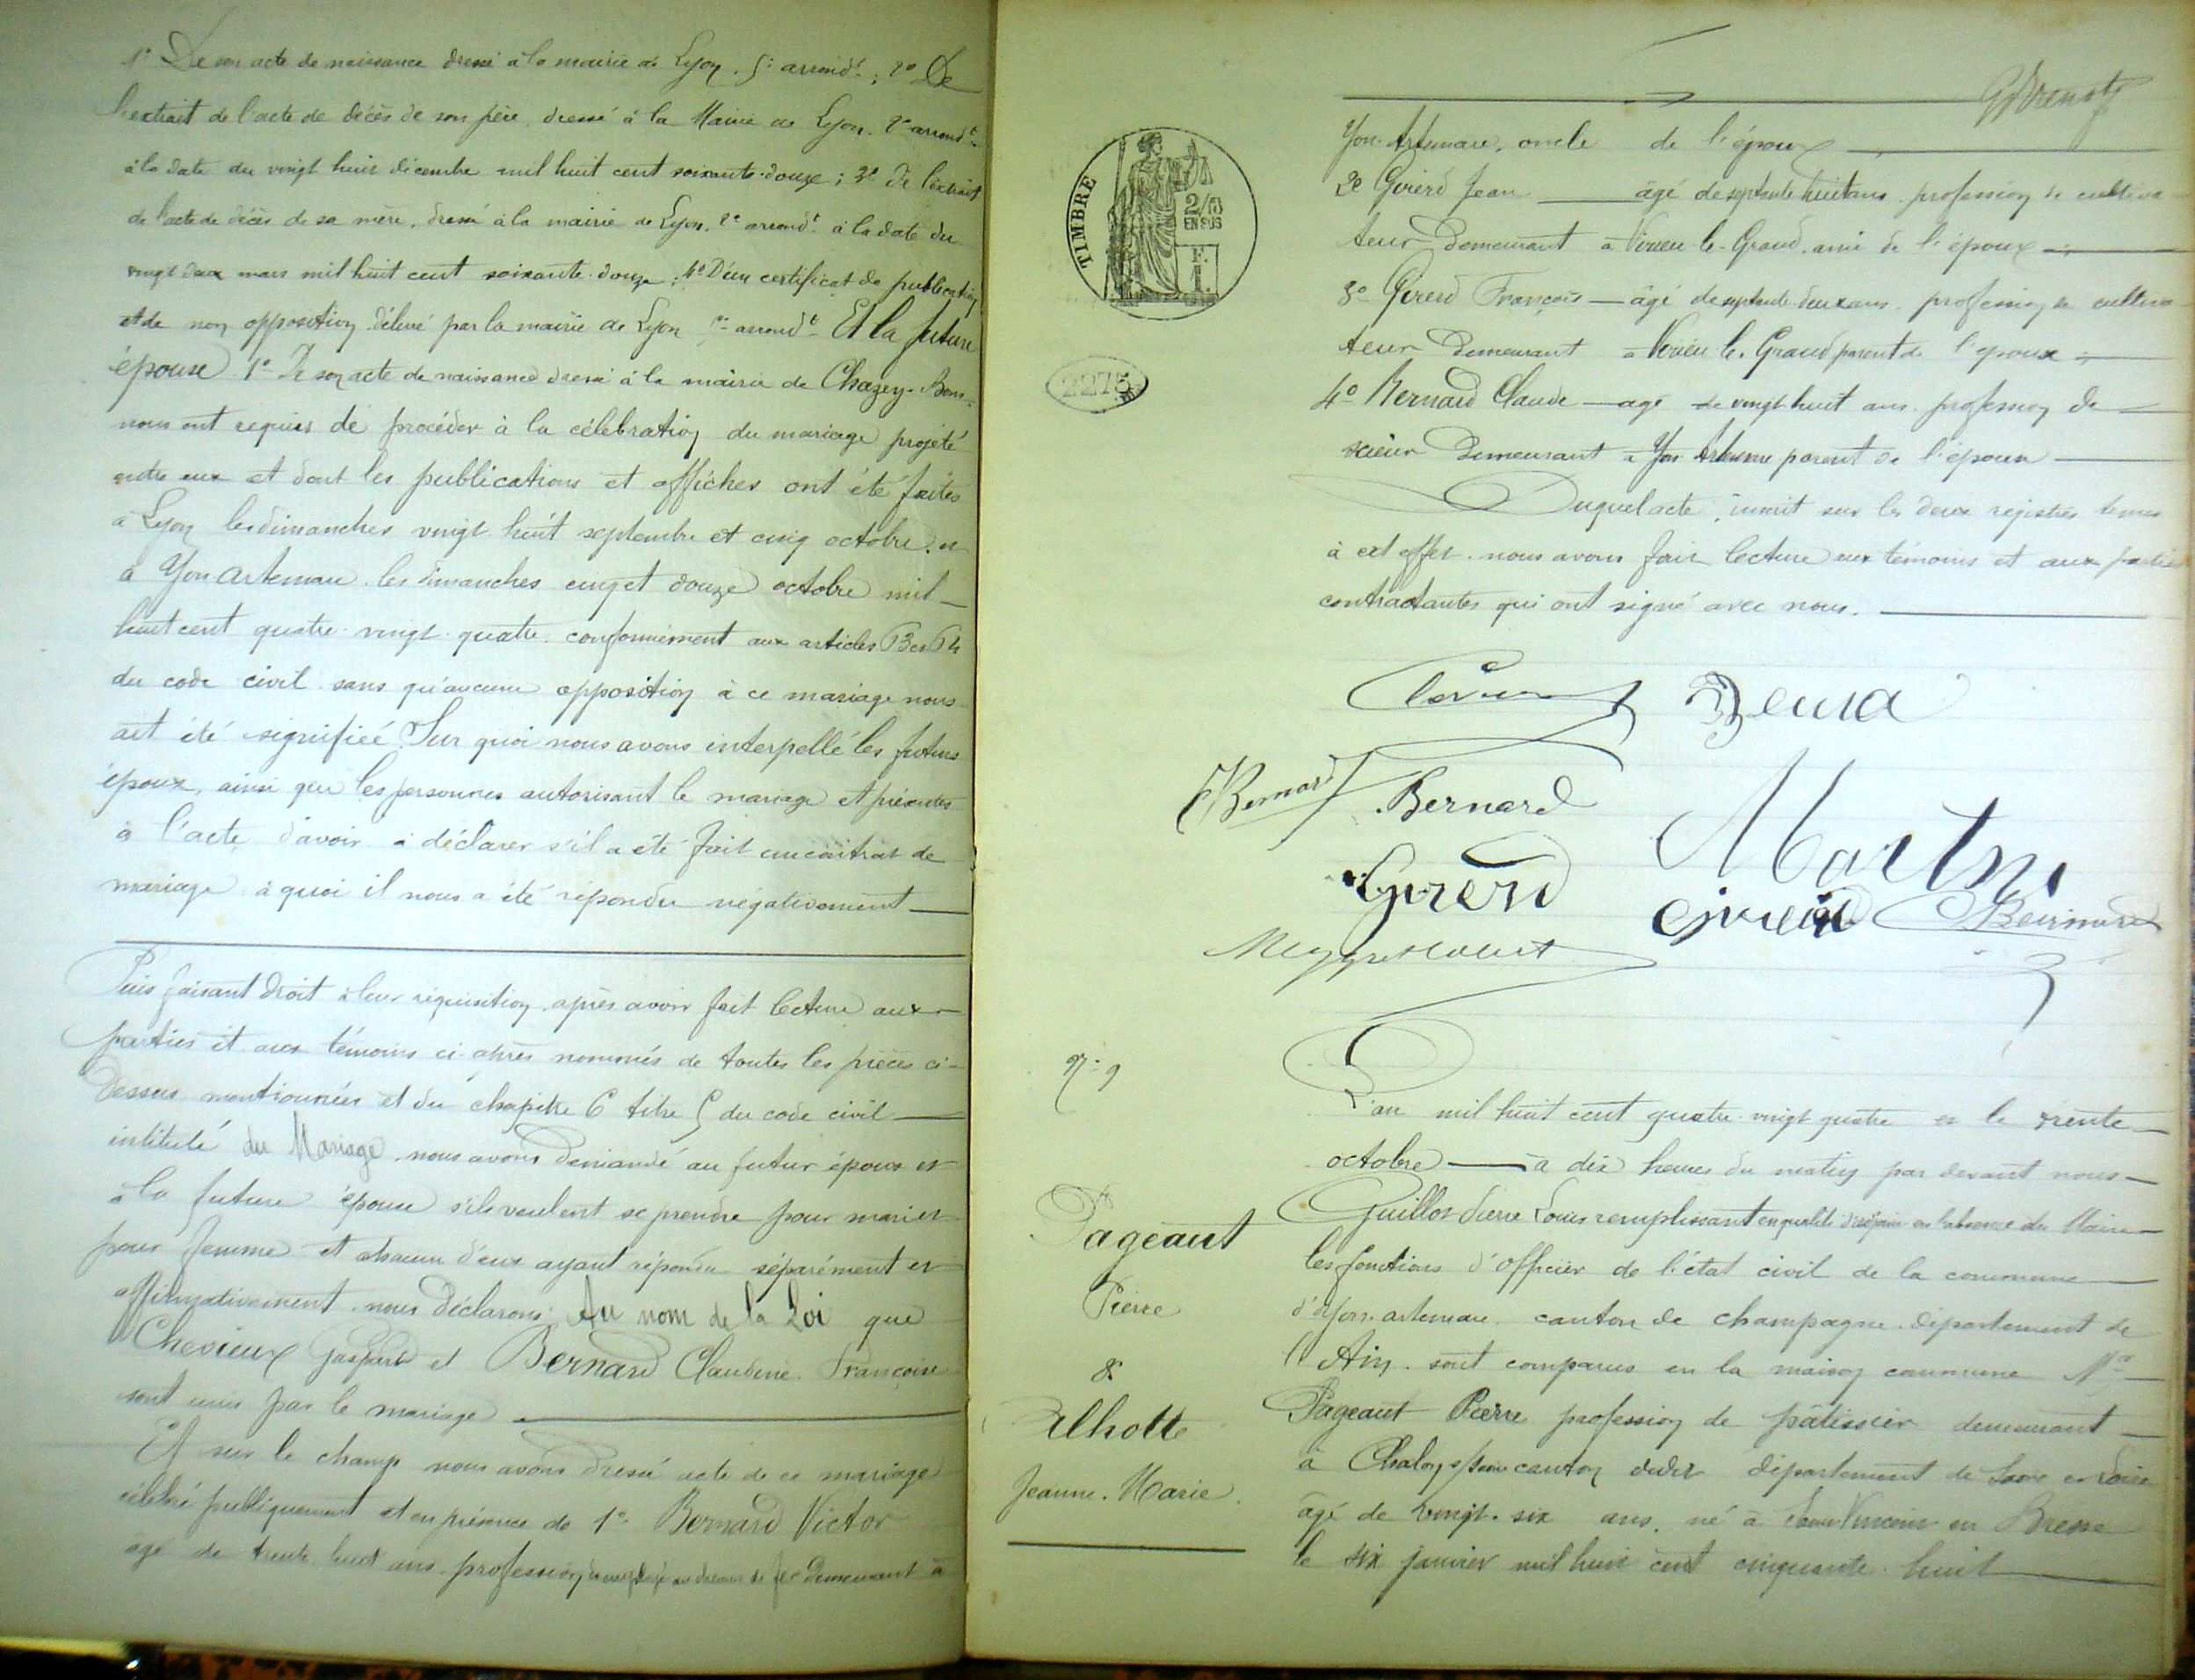 1° De son acte de naissance dressé à la mairie de Lyon. 5e arrondt; 2° De
l'extrait de l'acte de décès de son père dressé à la Mairie de Lyon. 2e arrondt
à la date du vingt huit décembre mil huit cent soixante-douze; 3° De l'extrait
de l'acte de décès de sa mère, dressé à la mairie de Lyon. 2e arrondt à la date du
vingt deux mars mil huit cent soixante-douze; 4° D'un certificat de publication
et de non opposition délivré par la mairie de Lyon 1er arrondt Et la future
épouse 1° De son acte de naissance dressé à la mairie de Chazey-Bons.
nous ont requis de procéder à la célébration du mariage projeté
entre eux et dont les publications et affiches ont été faites
à Lyon les dimanches vingt huit septembre et cinq octobre et
à Yon artemare les dimanches cinq et douze octobre mil
huit cent quatre-vingt-quatre conformément aux articles 63 et 64
du code civil sans qu'aucune opposition à ce mariage nous
ait été signifiée. Sur quoi nous avons interpellé les futurs
époux, ainsi que les personnes autorisant le mariage et présentes
à l'acte d'avoir à déclarer s'il a été fait un contrat de
mariage à quoi il nous a été répondu négativement
Puis faisant droit à leur réquisition, après avoir fait lecture aux
parties et aux témoins ci-après nommés de toutes les pièces ci-
dessus mentionnées et du chapitre 6 titre 5 du code civil
intitulé du Mariage, nous avons demandé au futur époux et
à la future épouse s'ils veulent se prendre pour mari et
pour femme et chacun d'eux ayant répondu séparément et
affirmativement nous déclarons Au nom de la Loi que
Chevieux Gaspard et Bernard Claudine Françoise
sont unis par le mariage
Et sur le champ nous avons dressé acte de ce mariage
célébré publiquement et en présence de 1° Bernard Victor
âgé de trente huit ans profession d'employé au chemin de fer demeurant à
TIMBRE
2/10
EN SUS
F.
1.
2275
Yon-Artemare, oncle de l'épouse
2° Girerd Jean âgé de septante huit ans profession de cultiva
teur Demeurant à Virieu le-Grand. ami de l'époux
3° Girerd François âgé de septante-deux ans profession de cultiva
teur Demeurant à Virieu le Grand parent de l'époux
4° Bernard Claude âgé de vingt huit ans profession de
scieur Demeurant à Yon Artemare parent de l'épouse
Duquel acte, inscrit sur les deux registres tenus
à cet effet, nous avons fait lecture aux témoins et aux parties
contractantes qui ont signé avec nous.
Bernard
Bernard
Girerd
Martin
Girerd
Bernard
N° 9
L'an mil huit cent quatre-vingt quatre et le trente
octobre à dix heures du matin par devant nous
Guillot Pierre Louis remplissant en qualité d'adjoint en l'absence du Maire
les fonctions d'officier de l'état civil de la commune
d'Yon-artemare canton de champagne département de
l'Ain. sont comparus en la maison commune Mr
Pageaut Pierre profession de pâtissier demeurant
à Chalon s/Saône canton dudit département de Saône et Loire
âgé de vingt-six ans, né à Saint Vincent en Bresse
le six janvier mil huit cent cinquante huit
Pageaut
Pierre
&
Alhotte
Jeanne-Marie.